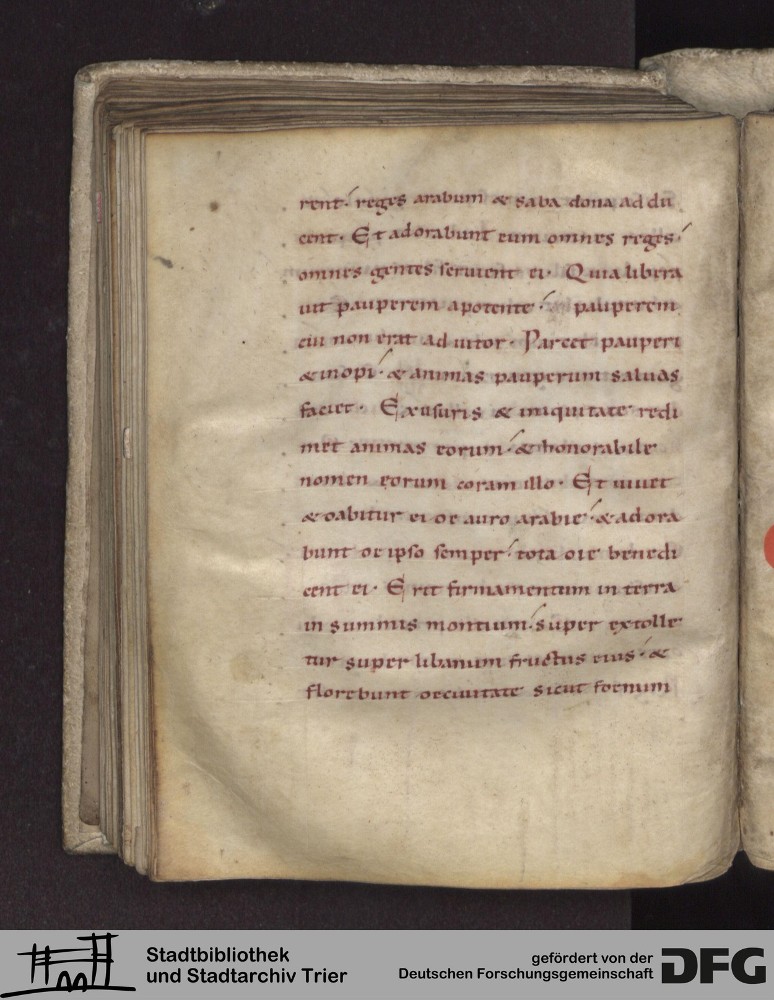 rent. reges arabum & saba dona addu
cent. Et adorabunt eum omnes reges
omnes gentes seruient ei. Quia libera
uit pauperem apotente. pauperem
cui non erat adiutor. Parcet pauperi
& inopi. & animas pauperum saluas
faciet. Exusuris & iniquitate redi
met animas eorum. & honorabile
nomen eorum coram illo. Et uiuet
& dabitur ei de auro arabie. & adora
bunt de ipso semper. tota die benedi
cent ei. Erit firmamentum in terra
in summis montium. super extolle
tur super libanum fructus eius. &
florebunt deciuitate sicut foenum
Stadtbibliothek
und Stadtarchiv Trier
gefördert von der
Deutschen Forschungsgemeinschaft
DFG